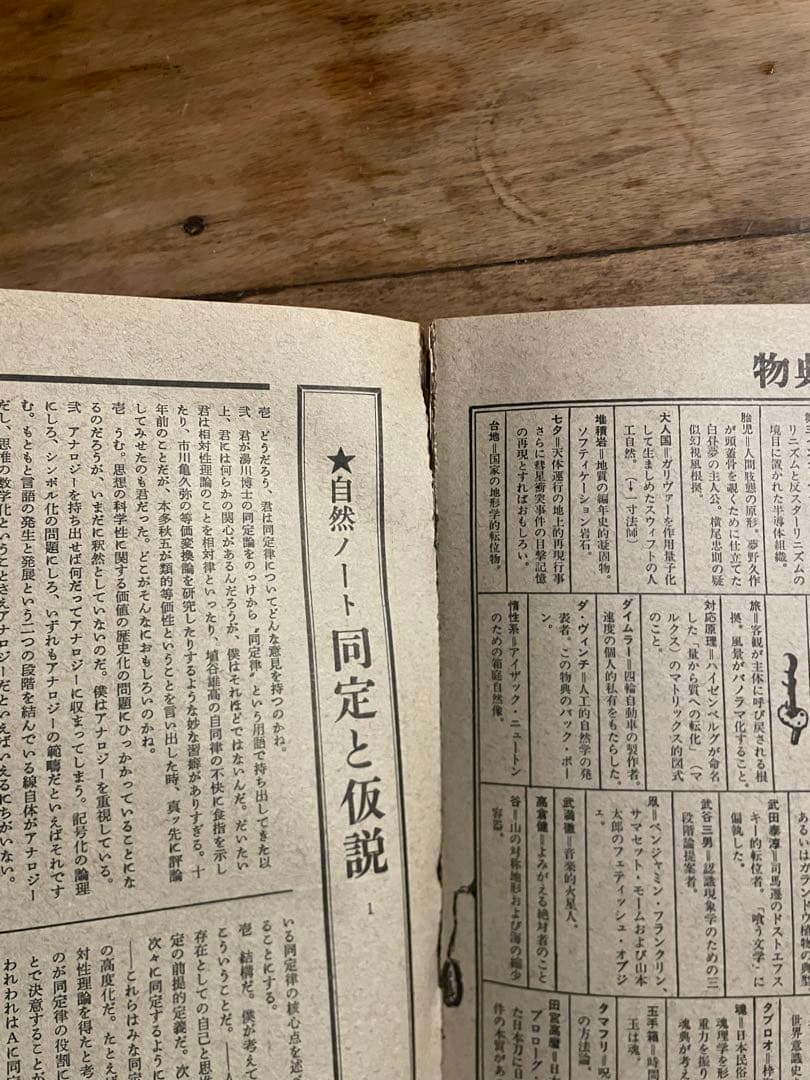 物典
リズムと反スターリニズムの
境目に置かれた半導体組織。
胎児＝人間肢態の原形。夢野久作
が頭蓋骨を覗くために仕立てた
白昼夢の主人公。横尾忠則の疑
似幻視風根拠。
大人国＝ガリヴァーを作用量子化
して生ましめたスウィフトの人
工自然。（↓一寸法師）
堆積岩＝地質の編年史的凝固物。
ソフィティケーション岩石。
七夕＝天体運行の地上的再現行事
さらに彗星衝突事件の目撃記憶
の再現とすればおもしろい。
台地＝国家の地形学的転位物。
旅＝客観が主体に呼び戻される根
拠。風景がパノラマ化すること。
対応原理＝ハイゼンベルグが命名
した「量から質への転化」（マ
ルクス）のマトリックス的図式
のこと。
ダイムラー＝四輪自動車の製作者。
速度の個人的私有をもたらした。
ダ・ヴィンチ＝人工的自然学の発
表者。この物典のバック・ボー
ン。
惰性系＝アイザック・ニュートン
のための箱庭自然像。
あるいはガランドウ植物の典型
武田泰淳＝司馬遷のドストエフス
キー的転位者。「喰う文学」に
偏執した。
武谷三男＝認識現象学のための三
段階論提案者。
凧＝ベンジャミン・フランクリン、
サマセット・モームおよび山本
太郎のフェティッシュ・オブジ
ェ。
武満徹＝音楽的火星人。
高倉健＝よみがえる絶対者のこと
谷＝山の対称地形および海の縮少
容器。
世界意識史
タブロオ＝枠
魂＝日本民俗
魂理学を形
重力を振り
魂典が考え
玉手箱＝時間
玉は魂。
タマフリ＝呪
の方法論。
田宮高麿＝日本
た日本刀に日
プロローグ・
件の本質があ
★自然ノート 同定と仮説 1
壱 どうだろう、君は同定律についてどんな意見を持つのかね。
弐 君が湯川博士の同定論をのっけから〝同定律〟という用語で持ち出してきた以
上、君には何らかの関心があるんだろうが、僕はそれほどではないんだ。だいたい
君は相対性理論のことを相対律といったり、埴谷雄高の自同律の不快に食指を示し
たり、市川亀久弥の等価変換論を研究したりするような妙な習癖がありすぎる。十
年前のことだが、本多秋五が類的等価性ということを言い出した時、真ッ先に評論
してみせたのも君だった。どこがそんなにおもしろいのかね。
壱 うむ。思想の科学性に関する価値の歴史化の問題にひっかかっていることにな
るのだろうが、いまだに釈然としていないのだ。僕はアナロジーを重視している。
弐 アナロジーを持ち出せば何だってアナロジーに収まってしまう。記号化の論理
にしろ、シンボル化の問題にしろ、いずれもアナロジーの範疇だといえばそれです
む。もともと言語の発生と発展という二つの段階を結んでいる線自体がアナロジー
だし、思惟の数学化ということさえアナロジーだといえばいえるにちがいない。
いる同定律の核心点を述べ
ることにする。
壱 結構だ。僕が考えて
こういうことだ。――A
存在としての自己と思惟
定の前提的定義だ。次
次々に同定するように
――これらはみな同定
の高度化だ。たとえば
対性理論を得たと考
のが同定律の役割に
とで決意することが
われわれはAに同定